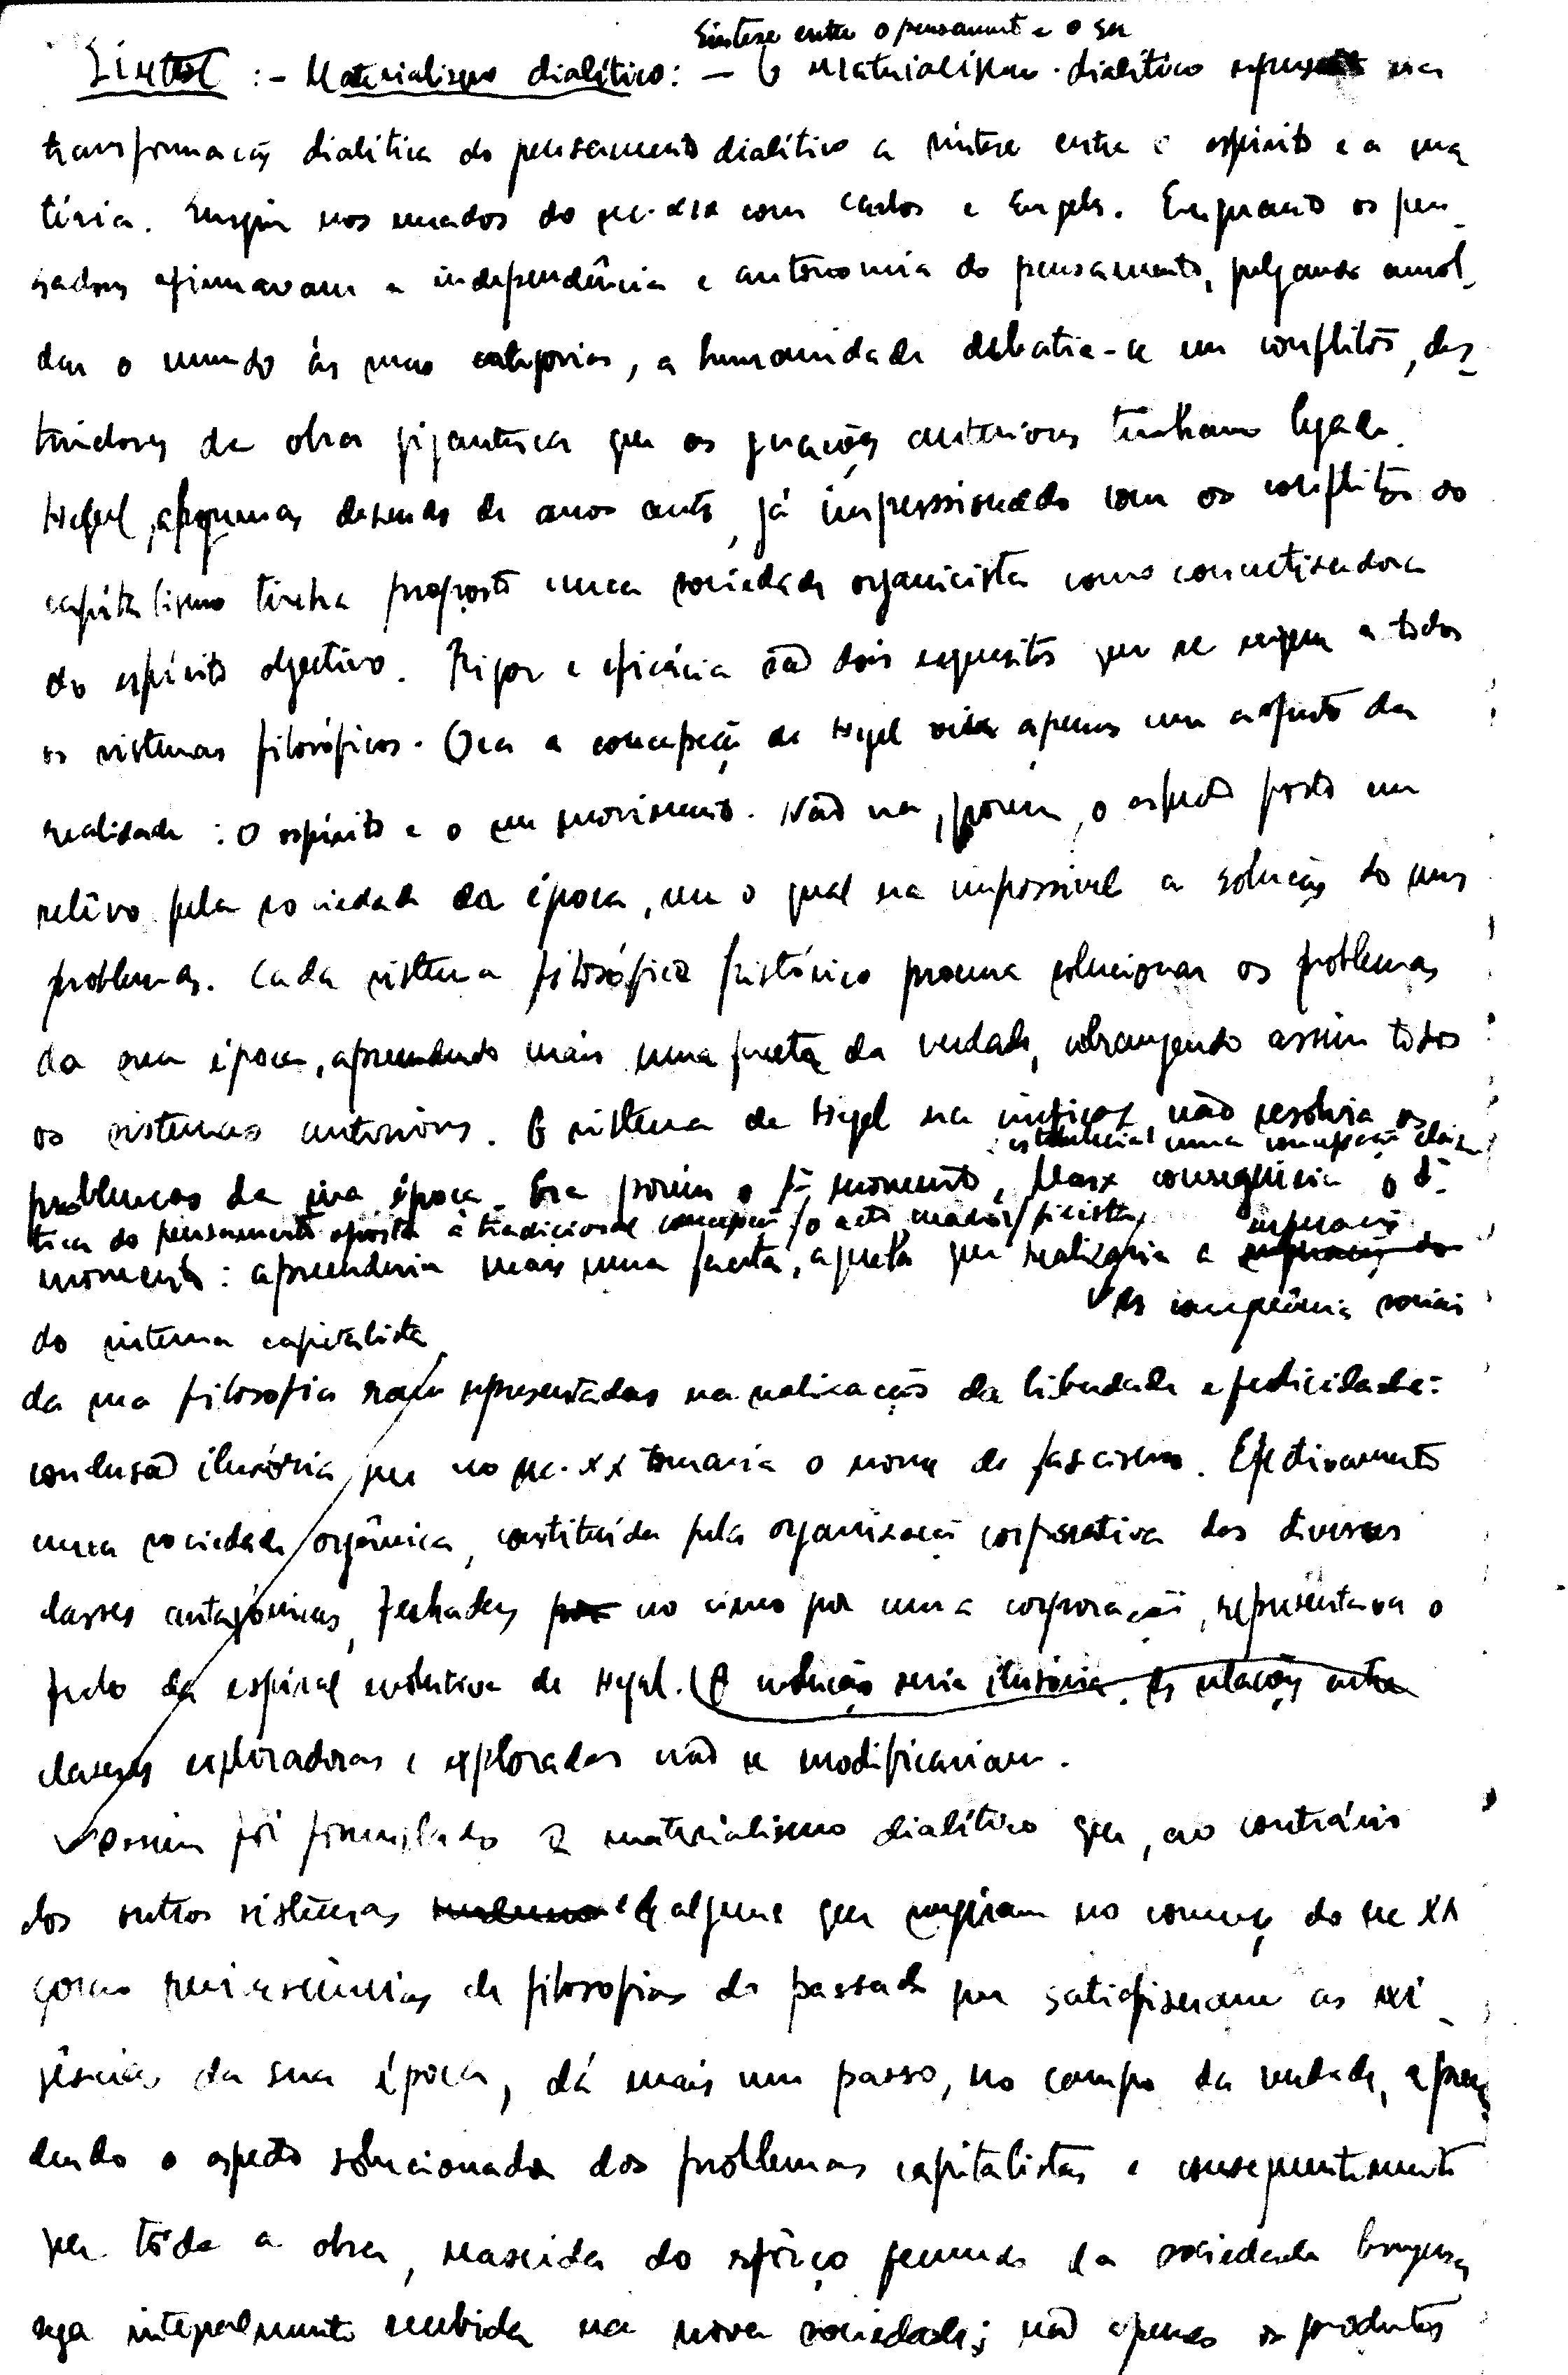 Síntese entre o pensament e o ser
Síntese :- Materialismo dialítico: — O materialismo dialítico represent na
transformação dialítica do pensamento dialítico a síntese entre o espírito e a ma
téria. Surgiu nos meados do sec. XIX com Carlos e Engels. Enquanto os pen
sadores afirmavam a independência e autonomia do pensamento, julgando amol
dar o mundo às suas categorias, a humanidade debatia-se em conflitos, des
truidores da obra gigantesca que as gerações anteriores tinham legado.
Hegel, algumas desenas de anos antes, já impressionado com os conflitos do
capitalismo tinha proposto uma sociedade organicista como concretisadora
do espírito objectivo. Rigor e eficácia são dois requesitos que se exigem a todos
os sistemas filosóficos. Ora a concepção de Hegel via apenas um aspecto da
realidade : o espírito e o seu movimento. Não era, porém, o aspecto posto em
relêvo pela sociedade da época, sem o qual era impossivel a solução do seus
problemas. Cada sistema filosófico histórico procura solucionar os problemas
da sua época, apreendendo mais uma faceta da verdade, abrangendo assim todos
os sistemas anteriores. O sistema de Hegel era ineficaz não resolvia os
uma concepção
problemas da sua época. Era porém o 1º momento, Marx conseguiria o 2º
tica do pensamento oposta à tradicional concepção
superação
momento : apreenderia mais uma faceta, aquela que realizaria a superação do
As sociais
do sistema capitalista
da sua filosofia representadas na realização da liberdade e felicidade:
conclusão ilusória que no sec. XX tomaria o nome de fascismo. Efectivamente
uma sociedade orgânica, constituída pela organisação corporativa das diversas
classes antagónicas, fechadas por no cimo por uma corporação, representava o
fecho da espiral evolutiva de Hegel. (A solução seria ilusória. As relações entre
classes exploradoras e exploradas não se modificariam.
Assim foi formulado o materialismo dialítico que, ao contrário
dos outros sistemas e de alguns que surgiram no começo do sec XX
como reminiscências de filosofias do passado que satisfiseram as exi
gências da sua época, dá mais um passo, no campo da verdade, apreen
dendo o aspecto solucionador dos problemas capitalistas e consequentemente
que tôda a obra, nascida do esfôrço fecundo da sociedade burguesa
seja integralmente recebida na nova sociedade; não apenas os produtos